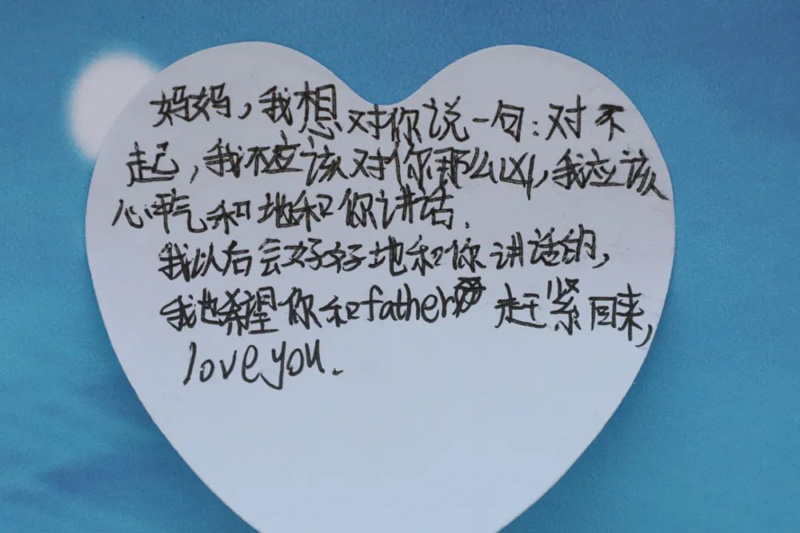 妈妈，我想对你说一句：对不
起，我不应该对你那么凶，我应该
心平气和地和你讲话．
我以后会好好地和你讲话的，
我也希望你和father 赶紧回来，
love you.